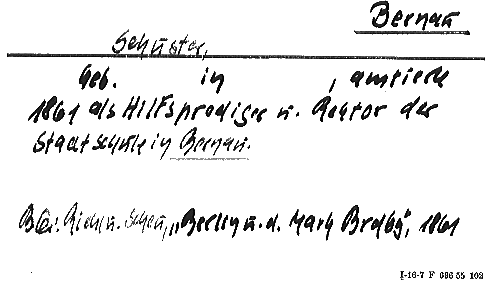 Bernau
Schuster,
Geb. in , amtierte
1861 als Hilfsprediger u. Rektor der
Stadtschule in Bernau.
"Berlin u. d. Mark Brdbg", 1861
I-16-7 F 696 55 102